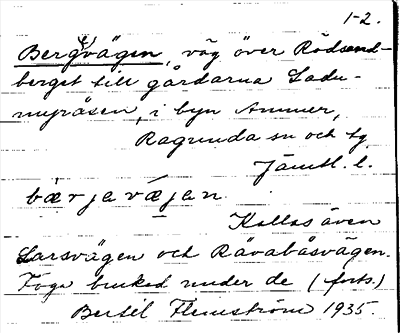 1-2.
Bergvägen, väg över Rödsand-
berget till gårdarna Ladu-
myråsen, i byn Ammer,
Ragunda sn och tg
Jämtl. l.
bærjavæjan.
Kallas även
Larsvägen och Rävabåsvägen.
Föga brukad under de (forts.)
Bertil Flemström 1935.